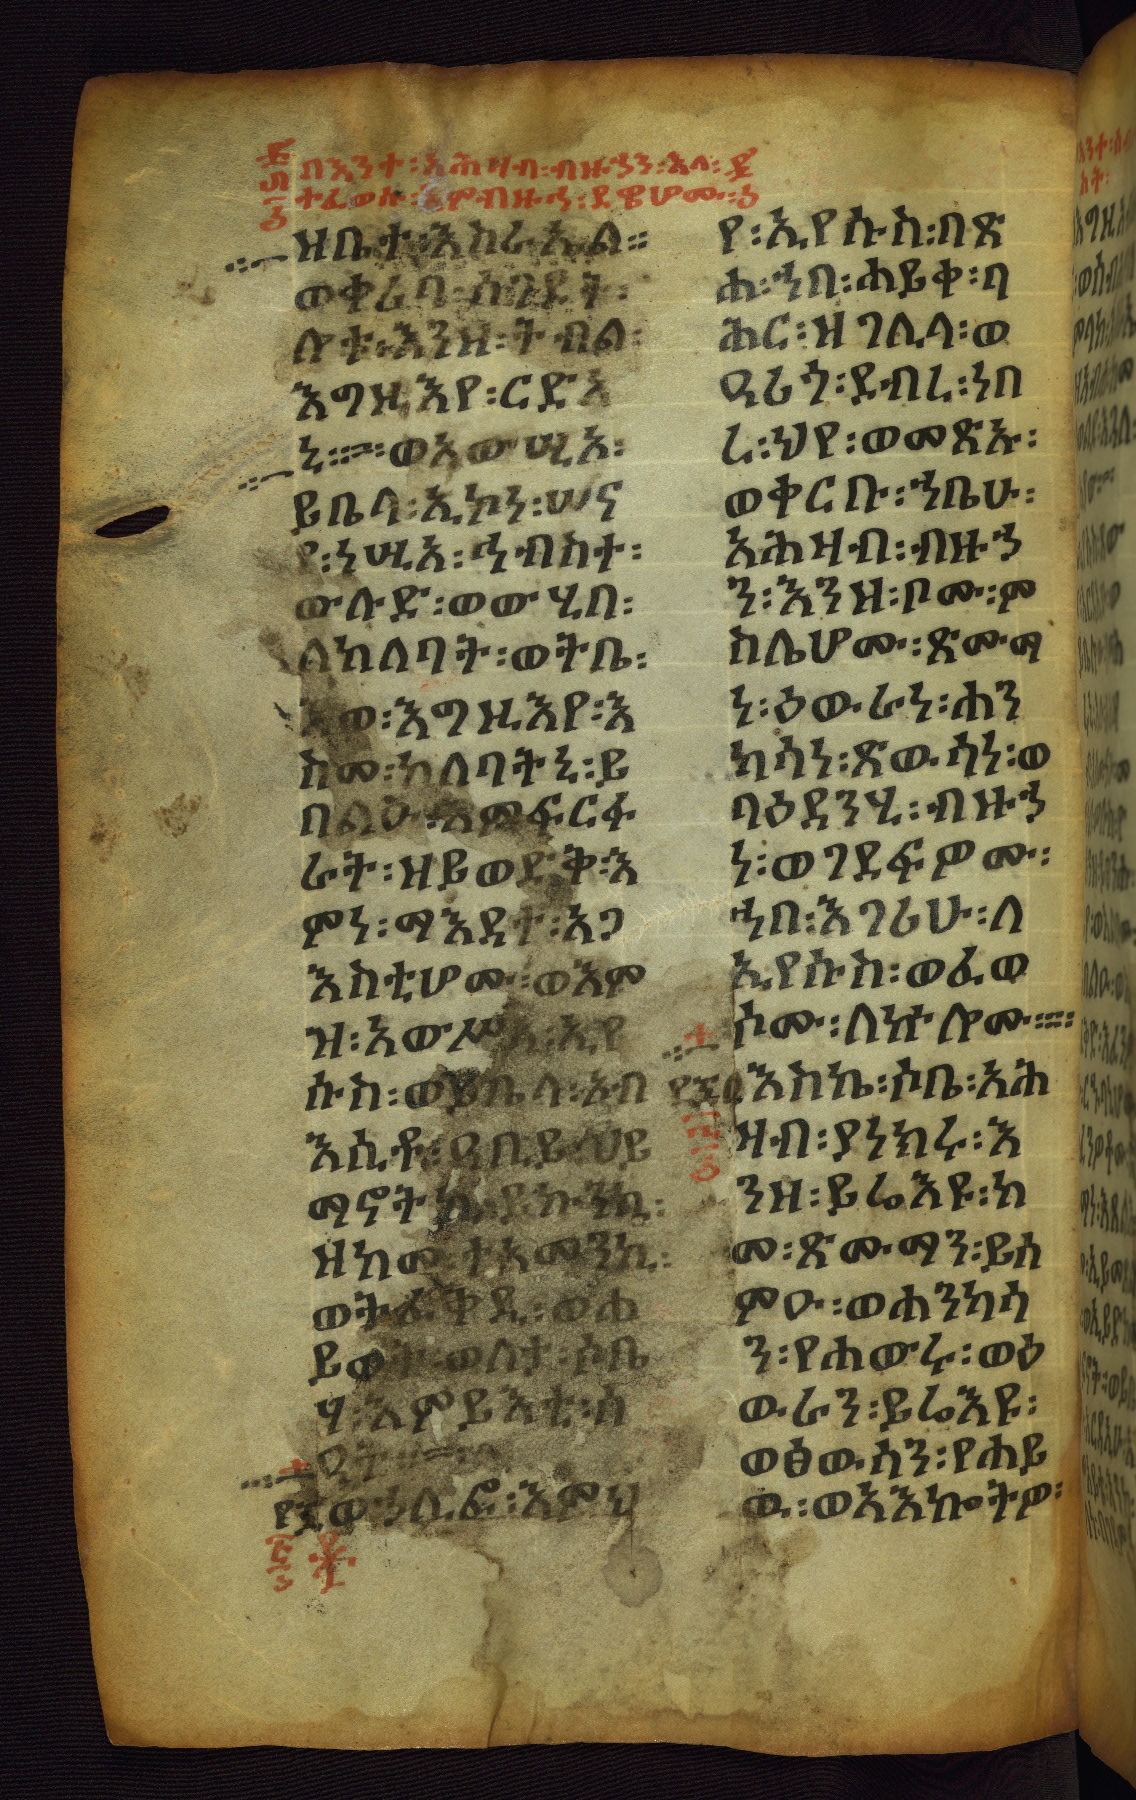 በእንተ፡አሕዛብ፡ብዙኃን፡እለ፡
ተፈወሱ፡እምብዙኅ፡ደዌሆሙ፡
ዘቤተ፡እስራኤል።
ወቀረባ፡ሰገደት፡
ሎቱ፡እንዘ፡ትብል፡
እግዚእየ፡ርድአ
ኒ።ወአውሥአ፡
ይቤላ፡ኢኮነ፡ሠና
የ፡ነሢአ፡ኅብስተ፡
ውሉድ፡ወውሂበ፡
ለከለባት፡ወትቤ፡
እወ፡እግዚእየ፡እ
ስመ፡ከለባትኒ፡ይ
በልዑ፡እምፍርፋ
ራት፡ዘይወድቅ፡እ
ምነ፡ማእደተ፡አጋ
እስቲሆሙ፡ወእም
ዝ፡አውሥአ፡ኢየ
ሱስ፡ወይቤላ፡ኦብ
እሲቶ፡ዓቢይ፡ሀይ
ማኖትኪ፡ይኩንኪ፡
ዘከመ፡ተአመንኪ፡
ወትፈቅዲ፡ወሐ
ይወት፡ወለታ፡ሶቤ
ሃ፡እምይእቲ፡ሰ
ዓት።
ወኃሊፎ፡እምህ
የ፡ኢየሱስ፡በጽ
ሐ፡ኀበ፡ሐይቀ፡ባ
ሕር፡ዘገሊላ፡ወ
ዓሪጎ፡ደብረ፡ነበ
ረ፡ህየ፡ወመጽኡ፡
ወቀርቡ፡ኀቤሁ፡
አሕዛብ፡ብዙኃ
ን፡እንዘ፡ቦሙ፡ም
ስሌሆሙ፡ጽሙማ
ነ፡ዕውራነ፡ሐን
ካሳነ፡ጽውሳነ፡ወ
ባዕዳንሂ፡ብዙኃ
ነ፡ወገደፍዎሙ፡
ኀበ፡እገሪሁ፡ለ
ኢየሱስ፡ወፈወ
ሶሙ፡ለኵሎሙ።
እስከ፡ሶቤ፡አሕ
ዛብ፡ያነክሩ፡እ
ንዘ፡ይሬእዩ፡ከ
መ፡ጽሙማን፡ይሰ
ምዑ፡ወሐንካሳ
ን፡የሐውሩ፡ወዕ
ውራን፡ይሬእዩ፡
ወፅውሳን፡የሐይ
ዉ፡ወአእኰትዎ፡